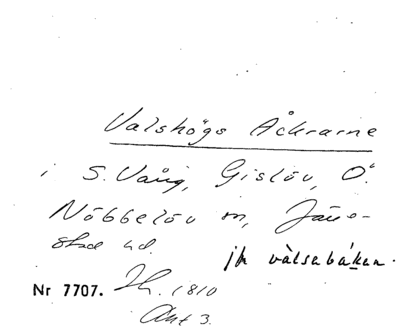 Valshögs Åckrarne
i S. Vång, Gislöv, Ö.
Nöbbelöv sn, Järre-
stad hd.
jfr vàlsabáken.
Nr 7707. Sk. 1810
Akt 3.